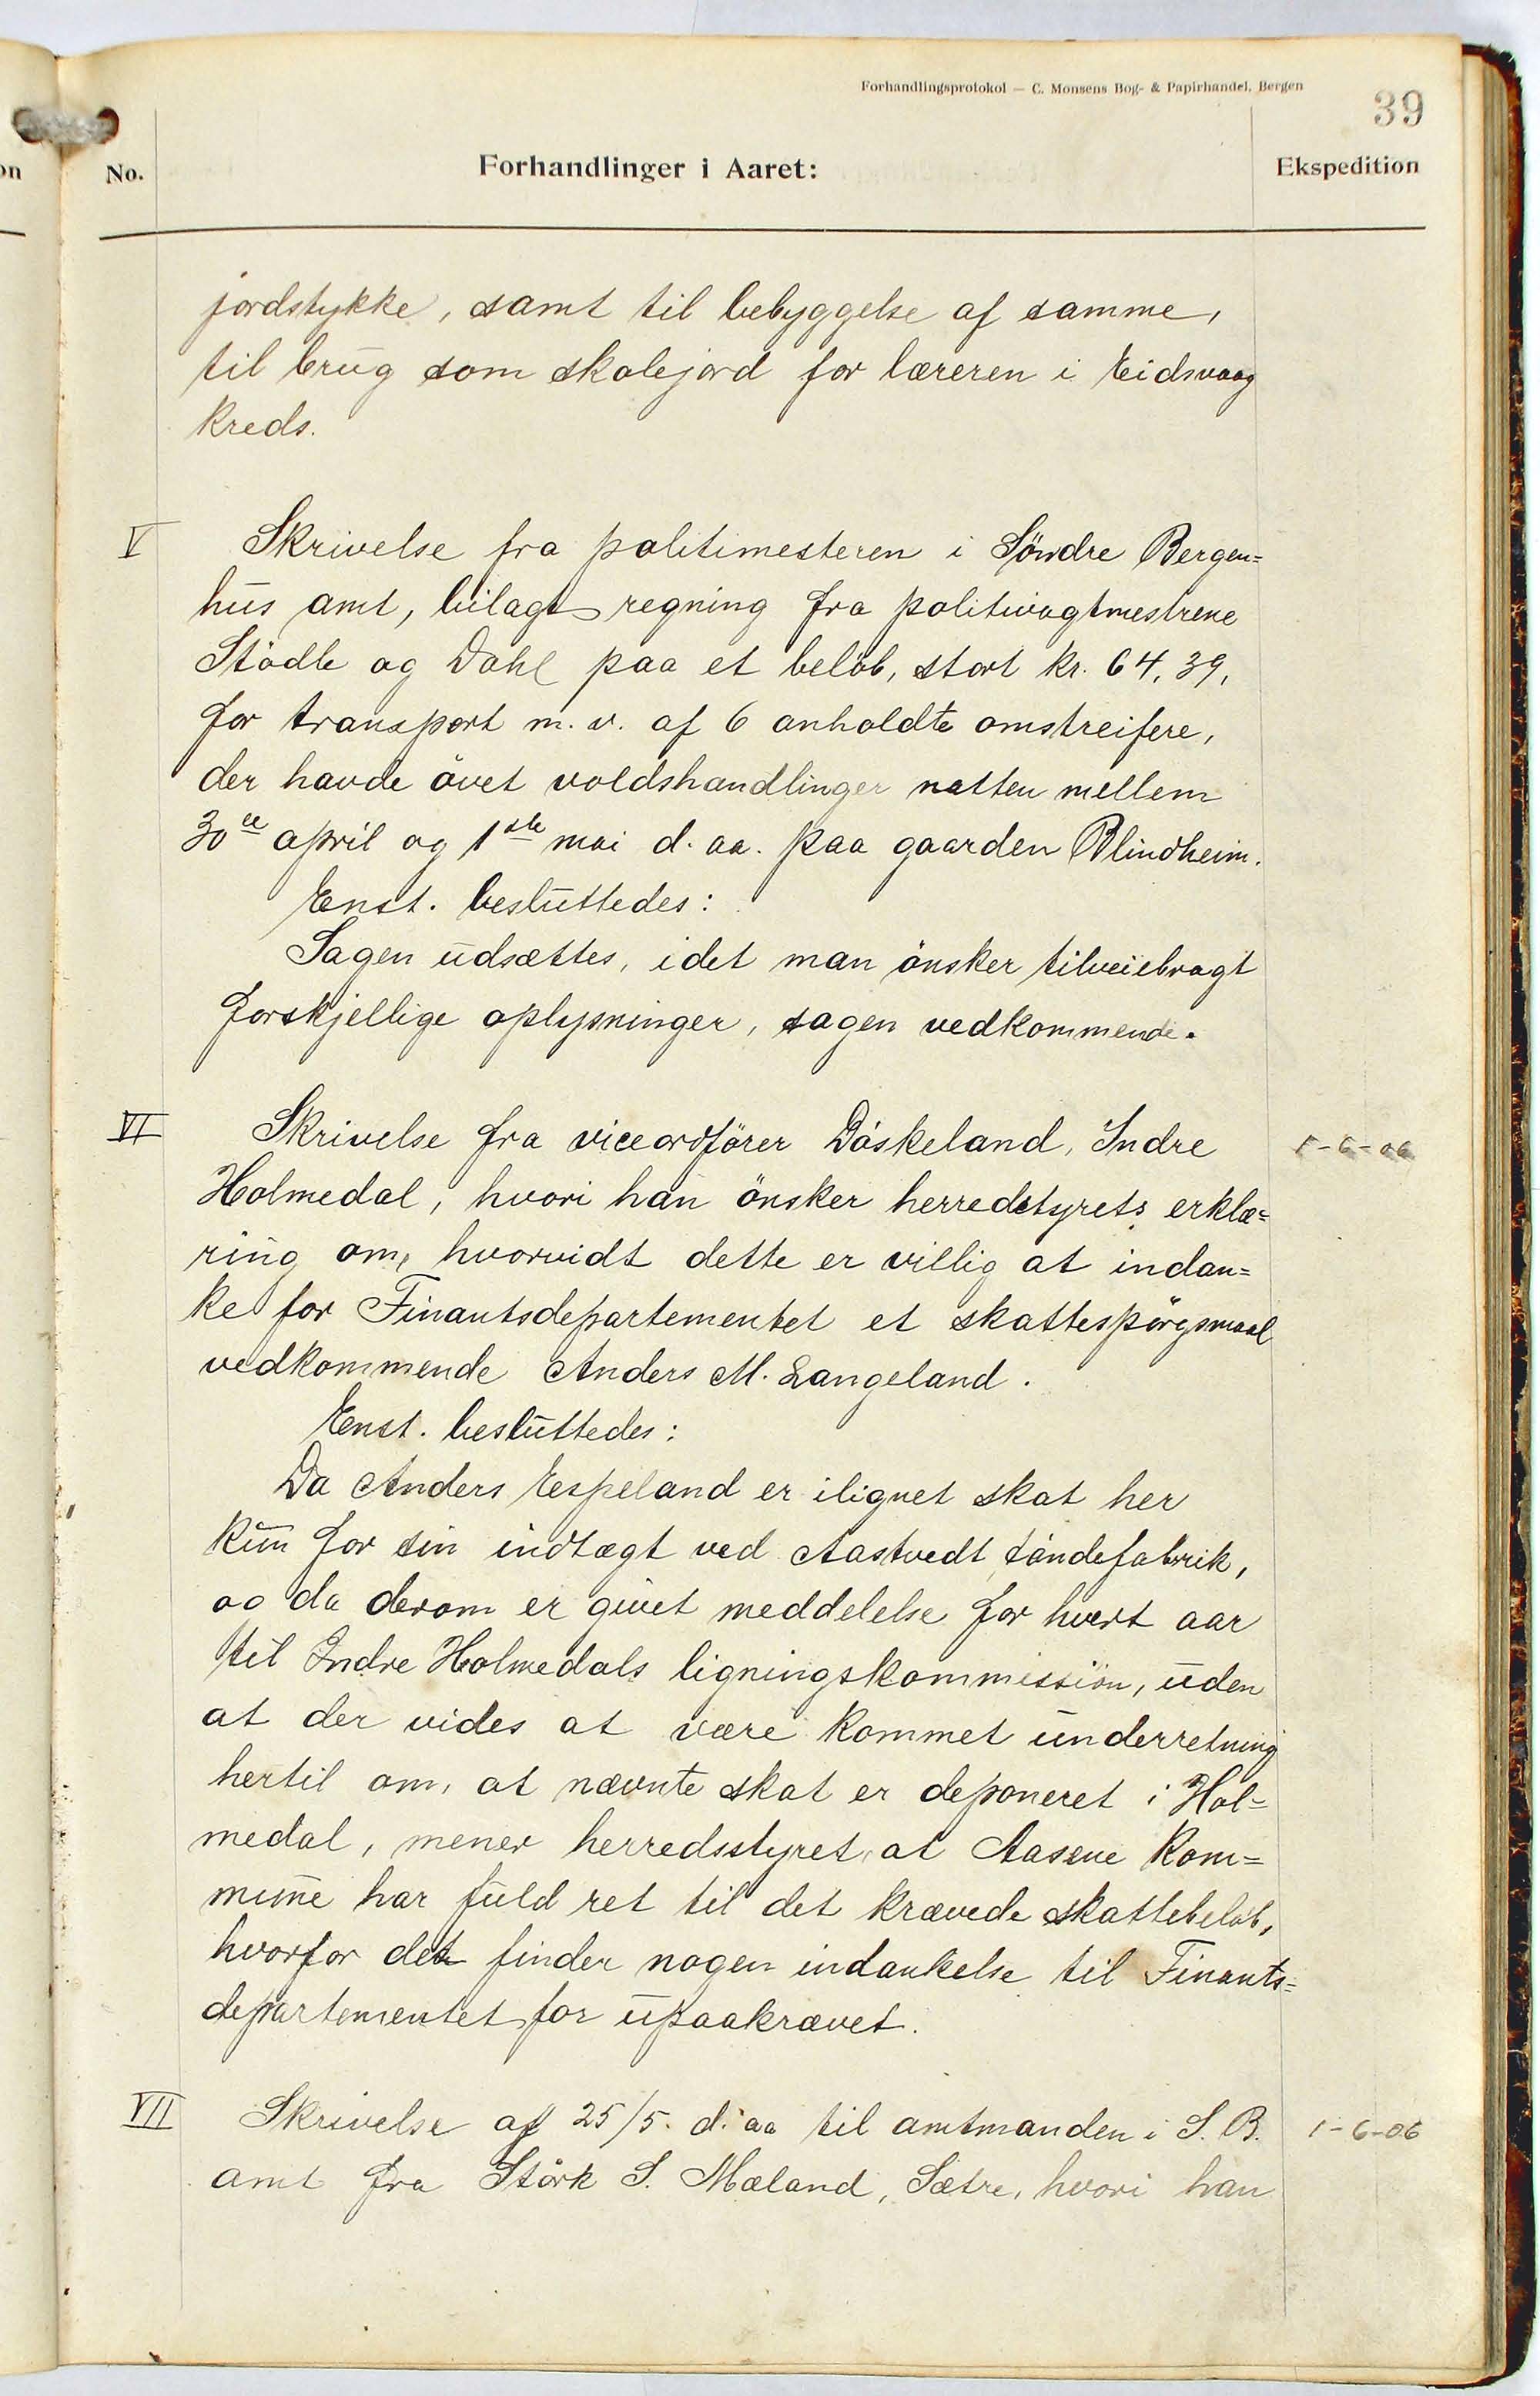 Forhandlingsprotokol — C. Monsens Bog- & Papirhandel, Bergen
39
on
No.
Forhandlinger i Aaret:
Ekspedition
jordstykke, samt til bebyggelse af samme,
til brug som skolejord for læreren i Eidsvaag
kreds.
V
Skrivelse fra politimesteren i Söndre Bergen=
hus amt, bilagt regning fra politivagtmestrene
Stödle og Dahl paa et belöb, stort kr. 64,39,
for transport m. v. af 6 anholdte omstreifere,
der havde övet voldshandlinger natten mellem
30te april og 1ste mai d. aa. paa gaarden Blindheim.
Enst. besluttedes:
Sagen udsættes, idet man önsker tilveiebragt
forskjellige oplysninger, sagen vedkommende.
VI
Skrivelse fra viceordförer Döskeland, Indre
1-6-06
Holmedal, hvori han önsker herredstyrets erklæ=
ring om, hvorvidt dette er villig at indan=
ke for Finantsdepartementet et skattespörgsmaal
vedkommende Anders M. Langeland.
Enst. besluttedes:
Da Anders Espeland er ilignet skat her
kun for sin indtægt ved Aastvedt töndefabrik,
og da derom er givet meddelelse for hvert aar
til Indre Holmedals ligningskommission, uden
at der vides at være kommet underretning
hertil om, at nævnte skat er deponeret i Hol=
medal, mener herredsstyret, at Aasene kom=
mune har fuld ret til det krævede skattebelöb,
hvorfor det finder nogen indankelse til Finants=
departementet for upaakrævet.
VII
Skrivelse af 25/5. d. aa til amtmanden i S. B.
1-6-06
amt fra Störk S. Mæland, Sætre, hvori han